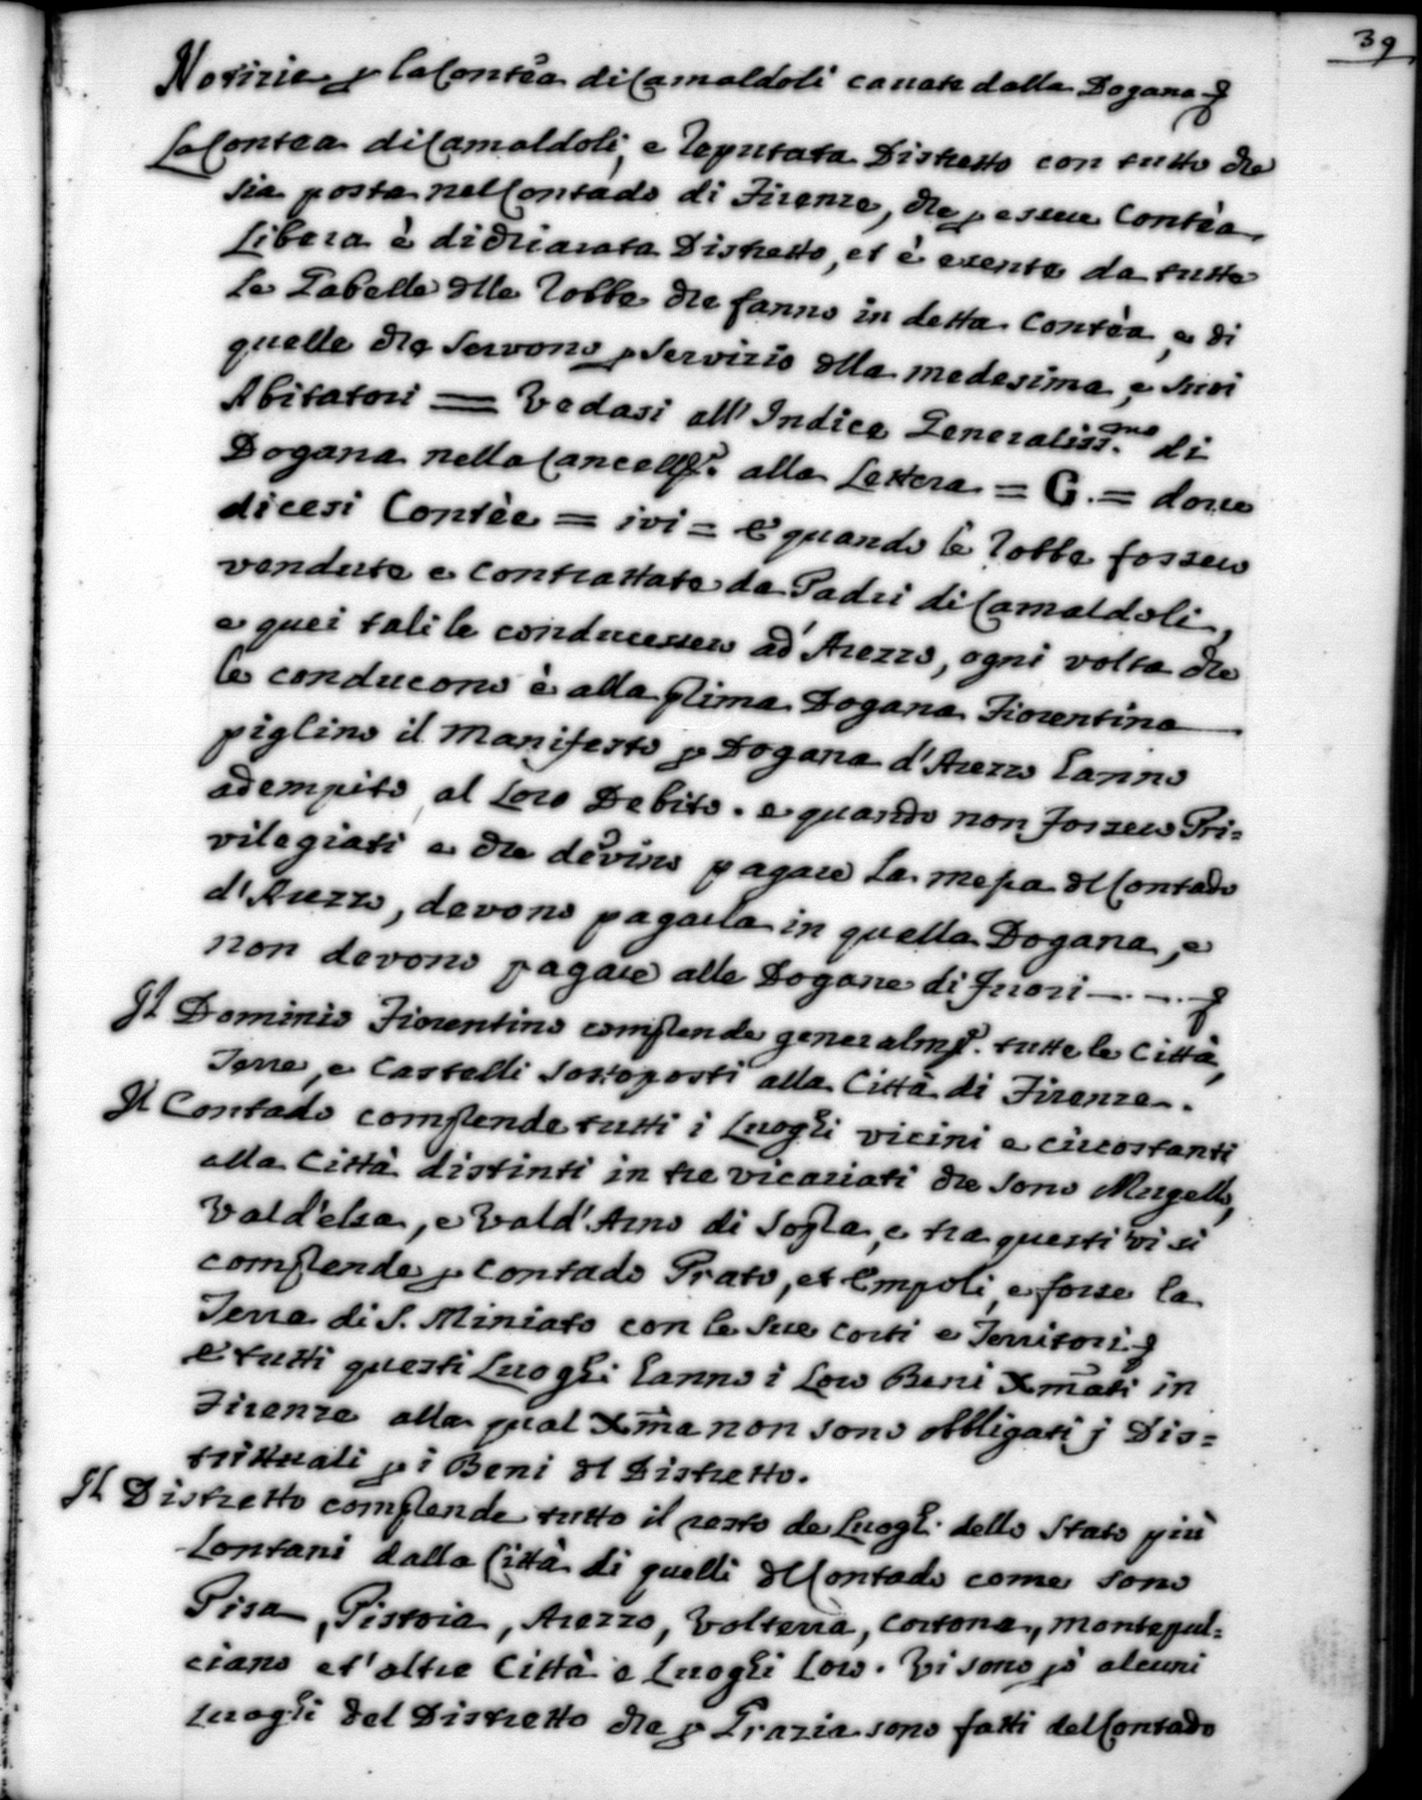 39
Notizie p la Contèa di Camaldoli cauate dalla Dogana
La Contea di Camaldoli, e reputata Distretto con tutto che
sia posta nel Contado di Firenze, che p essere Contèa
Libera è dichiarata Distretto, et è esente da tutte
le Gabelle dlle robbe che fanno in detta Contèa, e di
quelle che servono p servizio dlla medesima, e suoi
Abitatori = Vedasi all' Indice Generaliss.mo di
Dogana nella Cancellª. alla Lettera = G. = doue
dicesi Contèe = ivi = E quando le robbe fossero
vendute e contrattate da Padri di Camaldoli,
e quei tali le conducessero ad' Arezzo, ogni volta che
le conducono è alla prima Dogana Fiorentina
piglino il Manifesto p Dogana d' Arezzo hanno
adempito al loro Debito. e quando non fossero Pri=
vilegiati e che devino pagare la messa dl Contado
d' Arezzo, devono pagarla in quella Dogana, e
non devono pagare alle Dogane di fuori
Il Dominio Fiorentino comprende generalmᵉ. tutte le Città,
Terre, e Castelli sottoposti alla Città di Firenze.
Il Contado comprende tutti i Luoghi vicini e circostanti
alla Città distinti in tre vicariati che sono Mugello,
Vald'elsa, e Vald' Arno di sopra, e tra questi vi si
comprende p Contado Prato, et Empoli, e forse la
Terra di S. Miniato con le sue Corti e Territori
e tutti questi Luoghi hanno i loro Beni Xmati in
Firenze alla qual Xma non sono obbligati j Dis=
trittuali p i Beni dl Distretto.
Il Distretto comprende tutto il resto de Luoghi dello Stato più
Lontani dalla Città di quelli dl Contado come sono
Pisa, Pistoia, Arezzo, Volterra, Cortona, Montepul=
ciano et' altre Città e Luoghi loro. Vi sono pò alcuni
Luoghi del Distretto che p Grazia sono fatti del Contado